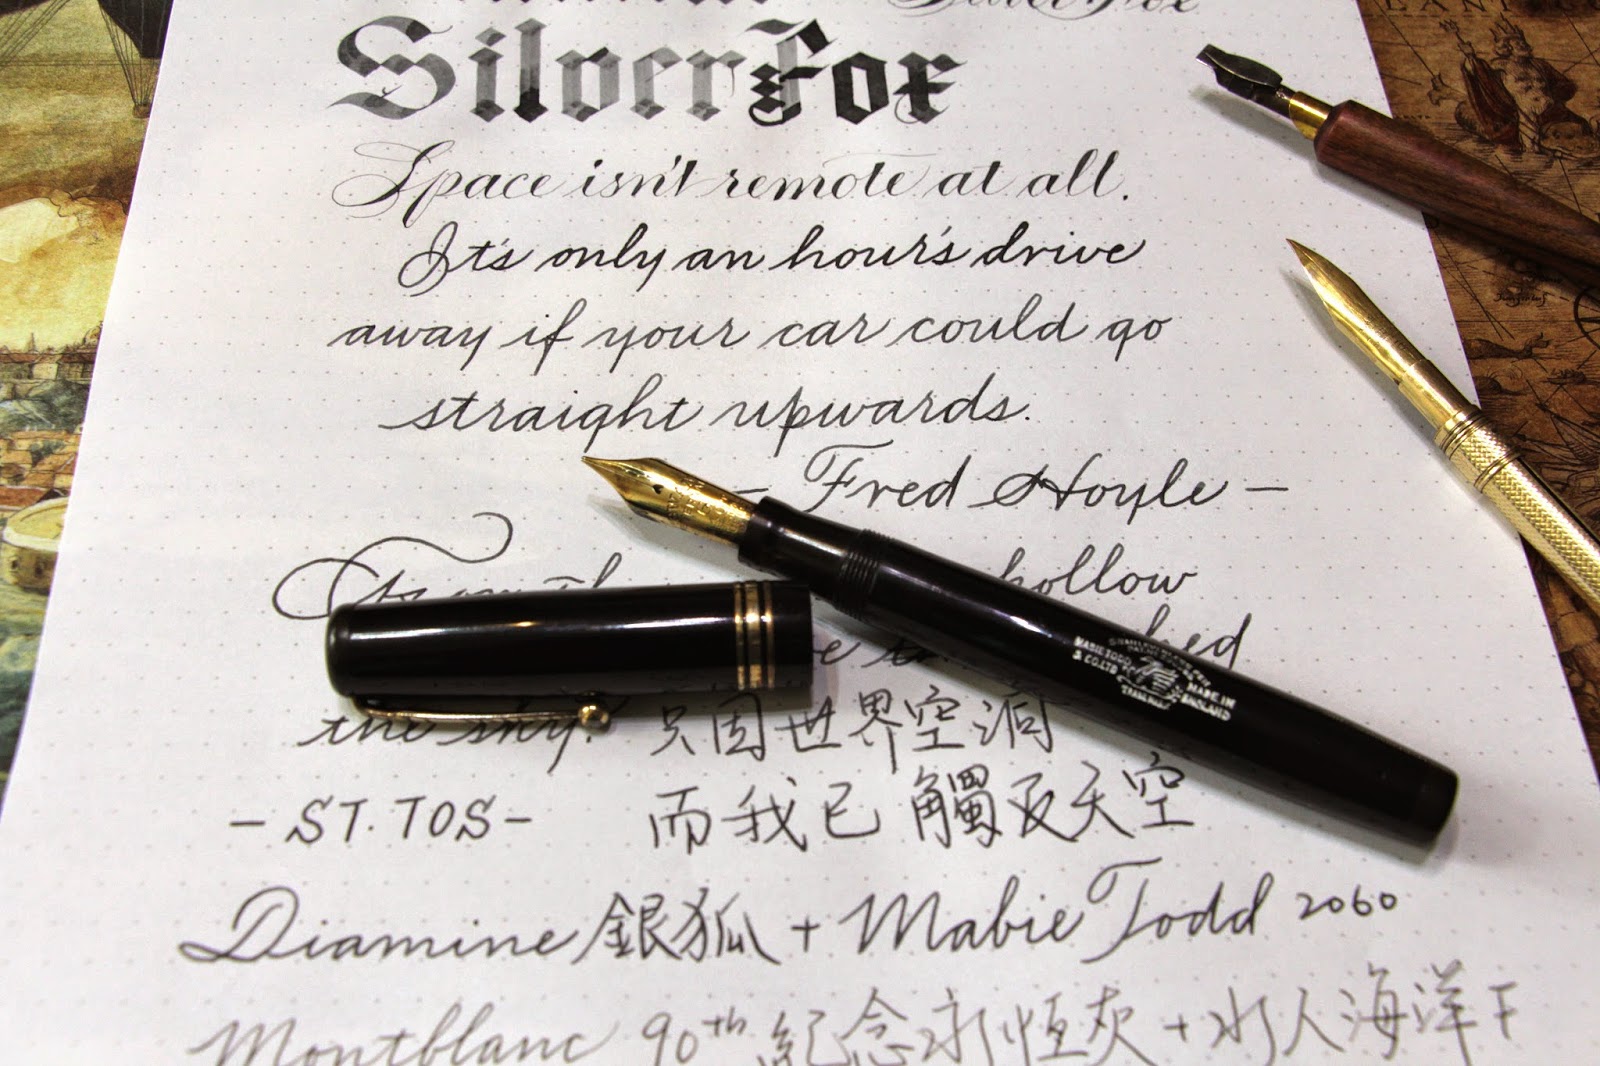 Silver Fox
SilverFox
Space isn't remote at all.
It's only an hour's drive
away if your car could go
straight upwards.
- Fred Hoyle -
hollow
the sky! 只因世界空洞
- ST.TOS - 而我已觸及天空
Diamine 銀狐 + Mabie Todd 2060
Montblanc 90th 紀念永恒灰 + 水人海洋F
MABIE TODD
& CO. LTD
MADE IN
ENGLAND